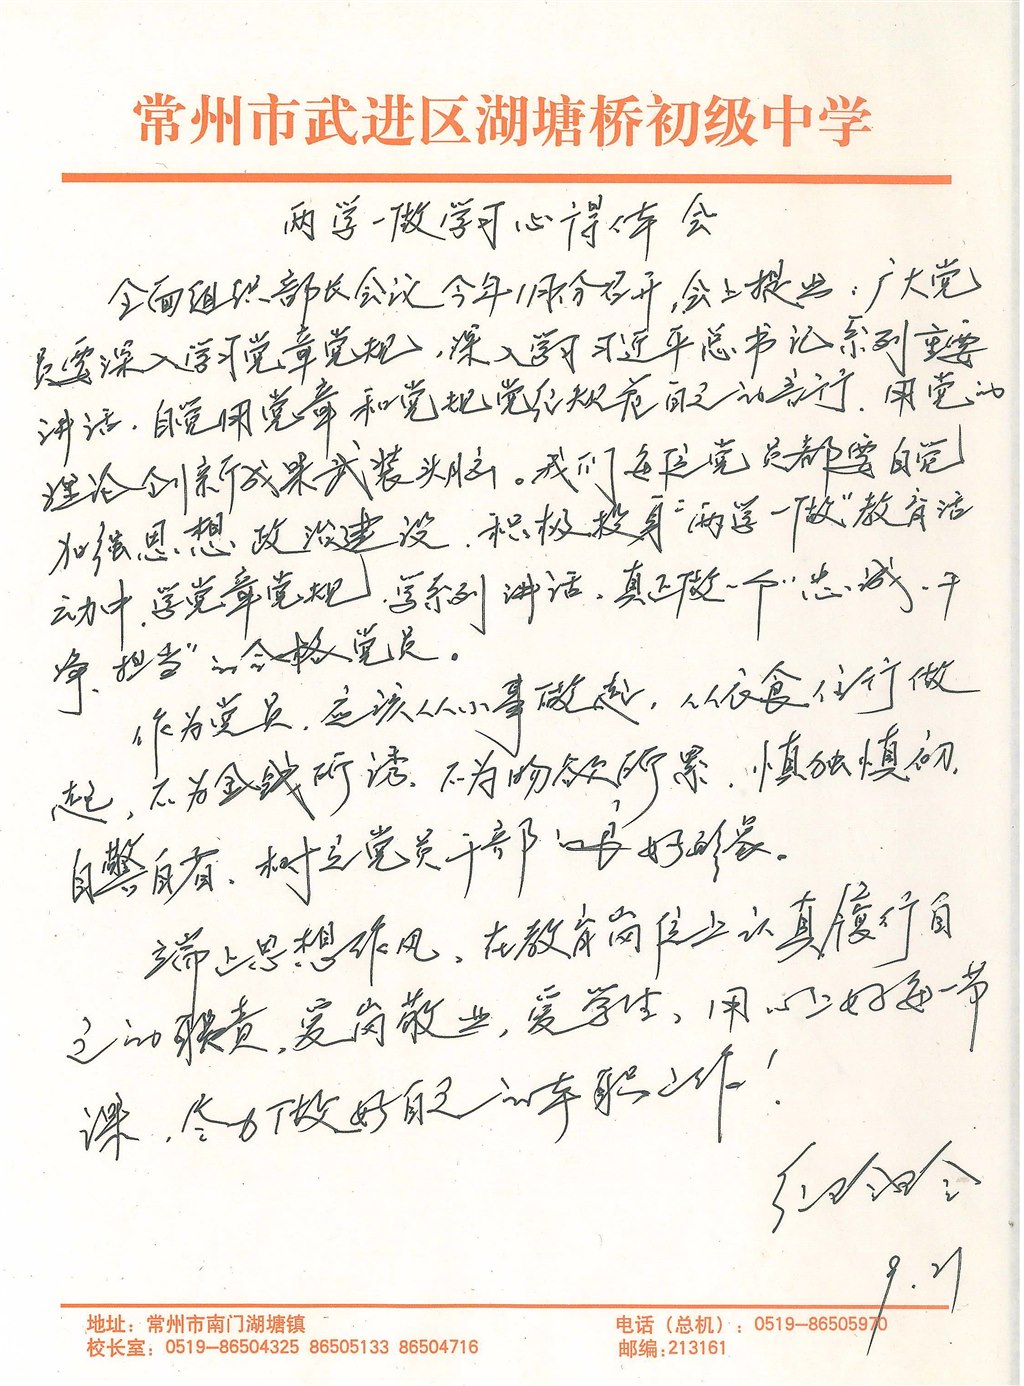 常州市武进区湖塘桥初级中学
两学一做学习心得体会
全面组织部长会议今年1月份召开,会上提出:广大党
员要深入学习党章党规,深入学习习近平总书记系列重要
讲话,自觉用党章和党规党纪规范自己的言行,用党的
理论创新成果武装头脑。我们每位党员都要自觉
加强思想政治建设,积极投身“两学一做”教育活
动中,学党章党规,学系列讲话,真正做一个“忠诚、干
净、担当”的合格党员。
作为党员,应该从小事做起,从衣食住行做
起,不为金钱所诱,不为物欲所累,慎独慎初,
自警自省,树立党员干部的良好形象。
端正思想作风,在教育岗位上认真履行自
己的职责,爱岗敬业,爱学生,用心上好每一节
课,尽力做好自己的本职工作!
9.21
地址:常州市南门湖塘镇
电话(总机):0519—86505970
校长室:0519—86504325 86505133 86504716
邮编:213161